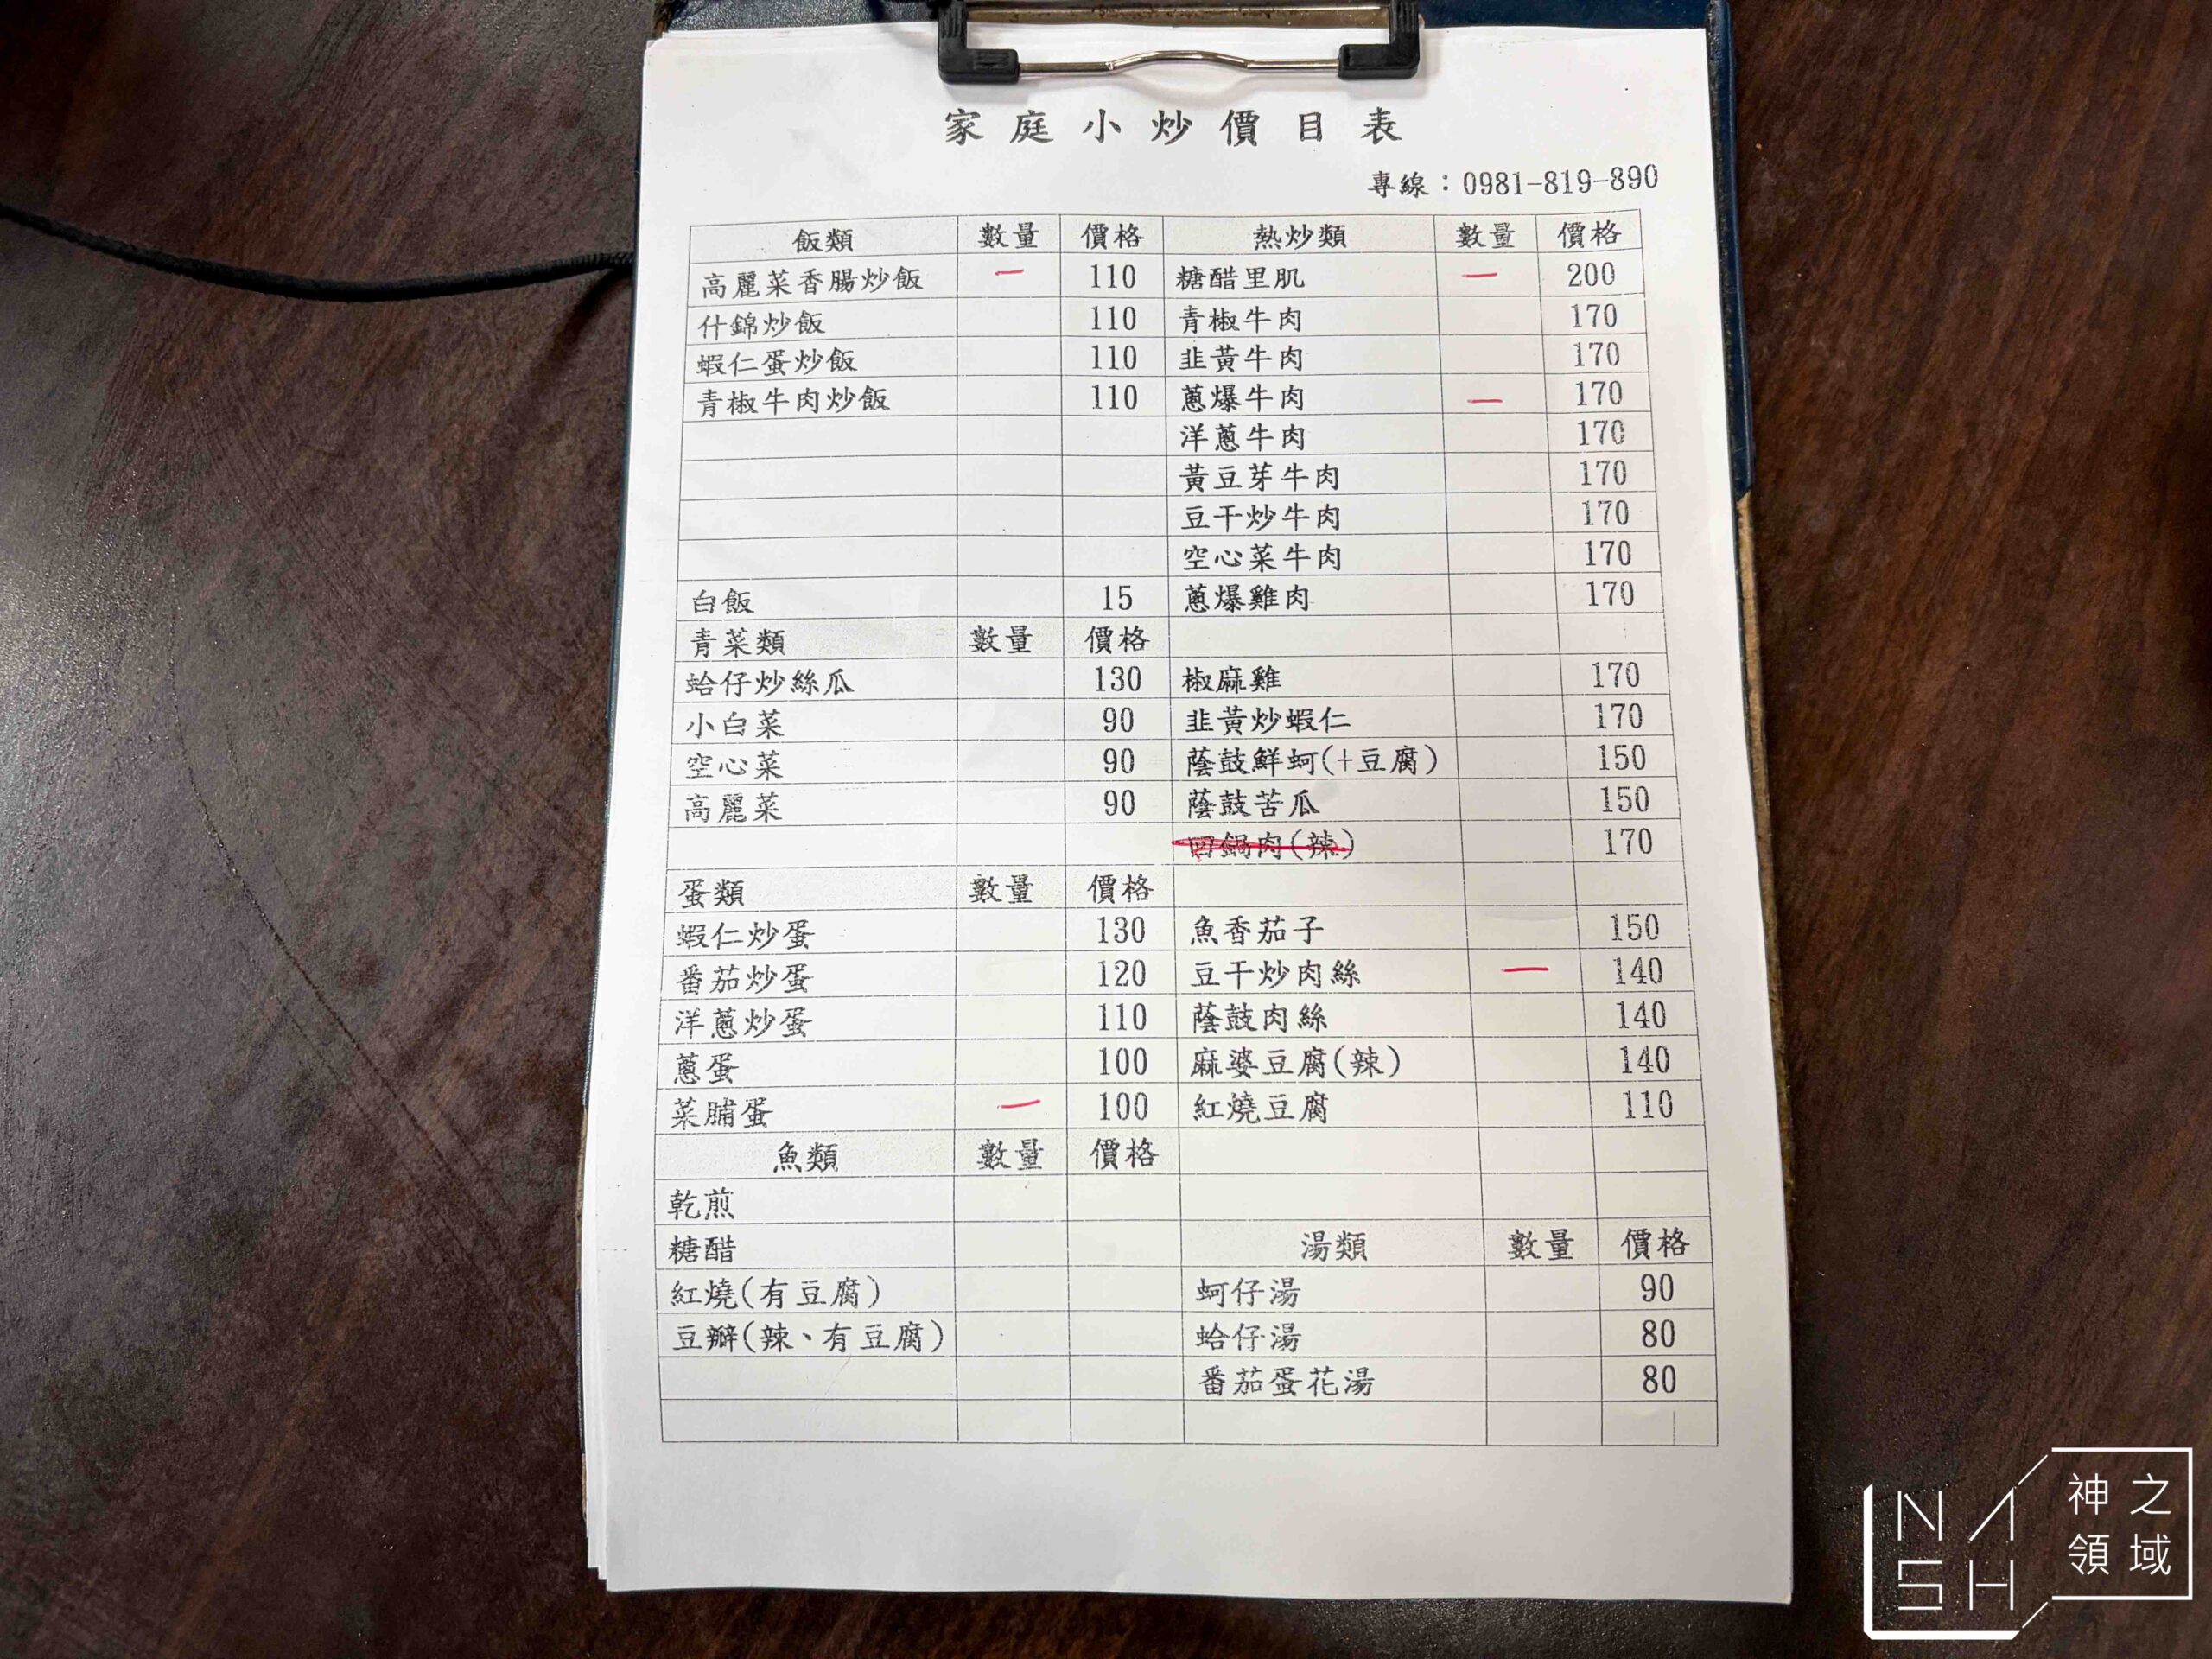 家庭小炒價目表
專線：0981-819-890
飯類 數量 價格 熱炒類 數量 價格
高麗菜香腸炒飯 一 110 糖醋里肌 一 200
什錦炒飯 110 青椒牛肉 170
蝦仁蛋炒飯 110 韭黃牛肉 170
青椒牛肉炒飯 110 蔥爆牛肉 一 170
洋蔥牛肉 170
黃豆芽牛肉 170
豆干炒牛肉 170
空心菜牛肉 170
白飯 15 蔥爆雞肉 170
青菜類 數量 價格
蛤仔炒絲瓜 130 椒麻雞 170
小白菜 90 韭黃炒蝦仁 170
空心菜 90 蔭鼓鮮蚵(+豆腐) 150
高麗菜 90 蔭鼓苦瓜 150
回鍋肉(辣) 170
蛋類 數量 價格
蝦仁炒蛋 130 魚香茄子 150
番茄炒蛋 120 豆干炒肉絲 一 140
洋蔥炒蛋 110 蔭鼓肉絲 140
蔥蛋 100 麻婆豆腐(辣) 140
菜脯蛋 一 100 紅燒豆腐 110
魚類 數量 價格
乾煎
糖醋 湯類 數量 價格
紅燒(有豆腐) 蚵仔湯 90
豆瓣(辣、有豆腐) 蛤仔湯 80
番茄蛋花湯 80
NASH
神之
領域